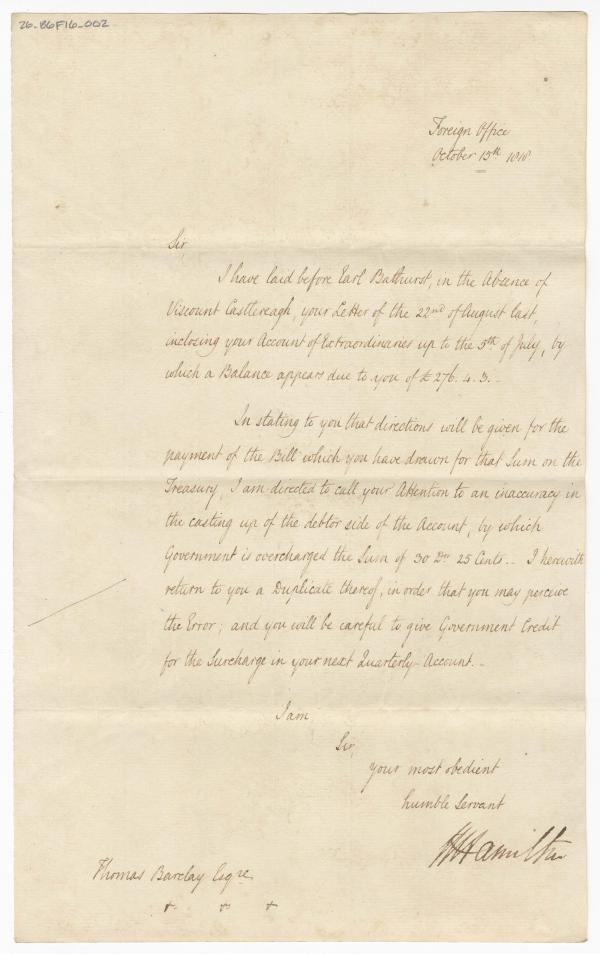 26-B6F16-002
Foreign Office
October 13th 1818
Sir,
I have laid before Earl Bathurst, in the Absence of
Viscount Castlereagh, your Letter of the 22nd of August last,
inclosing your Account of Extraordinaries up to the 5th of July, by
which a Balance appears due to you of £276. 4. 3. -
In stating to you that directions will be given for the
payment of the Bill which you have drawn for that Sum on the
Treasury, I am directed to call your Attention to an inaccuracy in
the casting up of the debtor side of the Account, by which
Government is overcharged the Sum of 30 Drs 25 Cents. - I herewith
return to you a Duplicate thereof, in order that you may perceive
the Error; and you will be careful to give Government Credit
for the Surcharge in your next Quarterly-Account. -
I am
Sir,
your most obedient
humble Servant
Hamilton
Thomas Barclay Esqre
+ + +